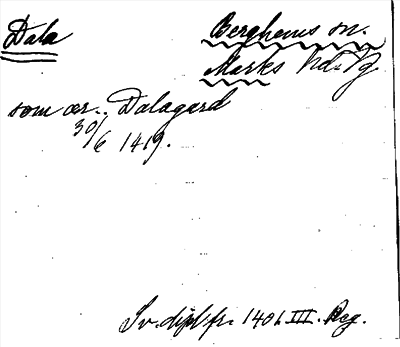 Dala
Berghems sn.
Marks hd. Vg
som ær.. Dalagard
30/6 1419.
Sv. dipl. fr. 1401. III. Reg.